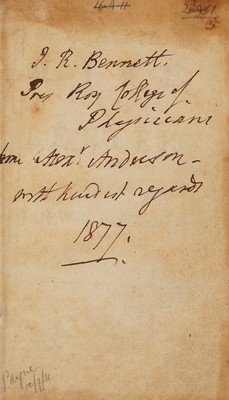 J. R. Bennett.
Pres Roy College of
Physicians
from Alexr. Anderson -
with kindest regards
1877.
Payne